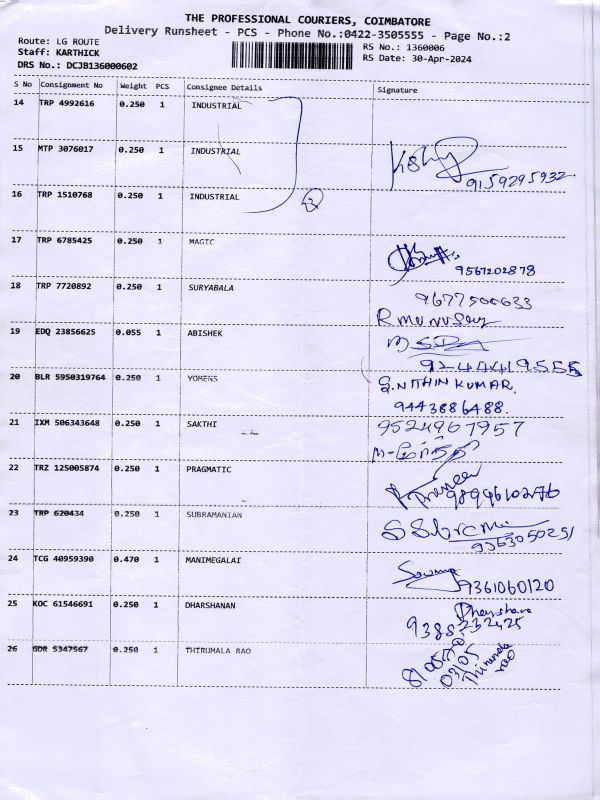 THE PROFESSIONAL COURIERS, COIMBATORE
Delivery Runsheet - PCS - Phone No.:0422-3505555 - Page No.:2
Route: LG ROUTE
Staff: KARTHICK
DRS No.: DCJB136000602
RS No.: 1360006
RS Date: 30-Apr-2024
S No Consignment No Weight PCS Consignee Details Signature
14 TRP 4992616 0.250 1 INDUSTRIAL
15 MTP 3076017 0.250 1 INDUSTRIAL
9159295932
16 TRP 1510768 0.250 1 INDUSTRIAL
3
17 TRP 6785425 0.250 1 MAGIC
9567202878
18 TRP 7720892 0.250 1 SURYABALA
9677500633
19 EDQ 23856625 0.055 1 ABISHEK
9244419555
20 BLR 5950319764 0.250 1 YOMENS
S.NITHIN KUMAR.
9443886488.
21 IXM 506343648 0.250 1 SAKTHI
9524967957
22 TRZ 125005874 0.250 1 PRAGMATIC
9899610276
23 TRP 620434 0.250 1 SUBRAMANIAN
9363050251
24 TCG 40959390 0.470 1 MANIMEGALAI
9361060120
25 KOC 61546691 0.250 1 DHARSHANAN
Dharshana
9388232425
26 GDR 5347567 0.250 1 THIRUMALA RAO
Thirumala
rao